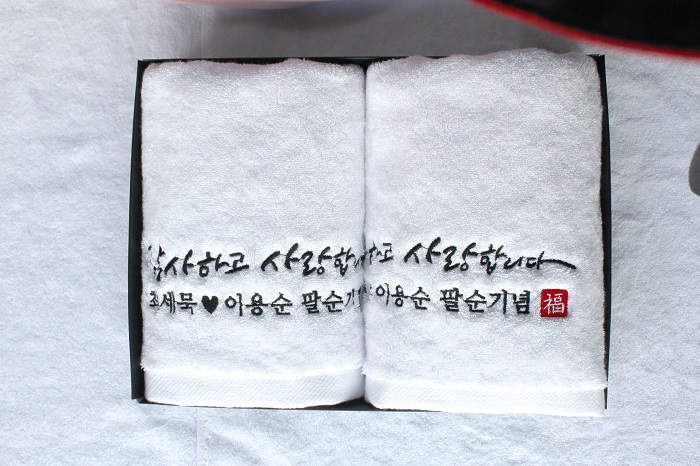 감사하고 사랑합
최세묵♥이용순 팔순기
하고 사랑합니다
이용순 팔순기념 福